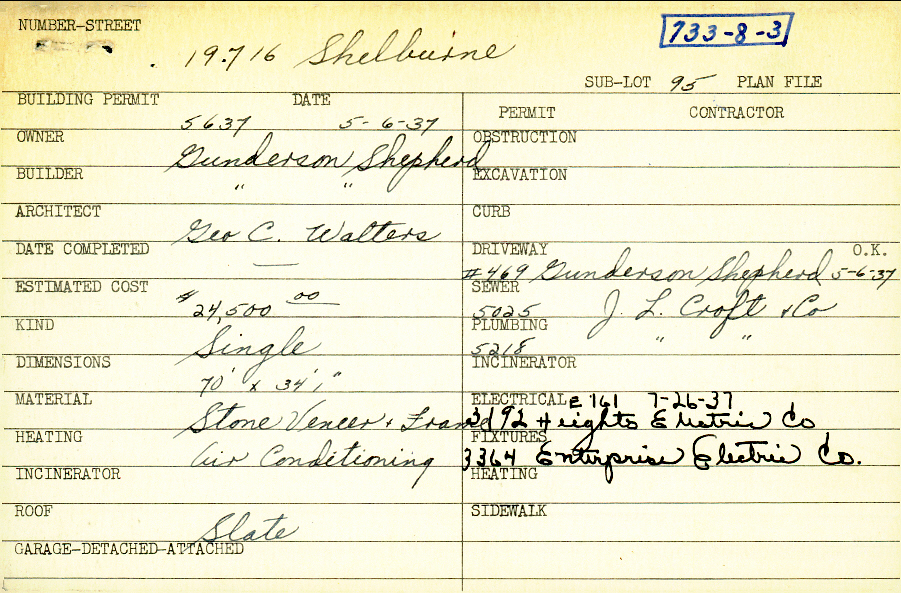 NUMBER-STREET
733-8-3
19716 Shelburne
SUB-LOT 95 PLAN FILE
BUILDING PERMIT DATE
5637 5-6-37
PERMIT CONTRACTOR
OWNER
Gunderson Shepherd
OBSTRUCTION
BUILDER
" "
EXCAVATION
ARCHITECT
Geo C. Walters
CURB
DATE COMPLETED
—
DRIVEWAY O.K.
#469 Gunderson Shepherd 5-6-37
ESTIMATED COST
$24,500 00
SEWER
5025 J. L. Croft & Co
KIND
Single
PLUMBING
5218 " "
DIMENSIONS
70' x 34'1"
INCINERATOR
MATERIAL
Stone Veneer & Frame
ELECTRICAL E 161 7-26-37
3192 Heights Electric Co
HEATING
Air Conditioning
FIXTURES
3364 Enterprise Electric Co.
INCINERATOR
HEATING
ROOF
Slate
SIDEWALK
GARAGE-DETACHED-ATTACHED